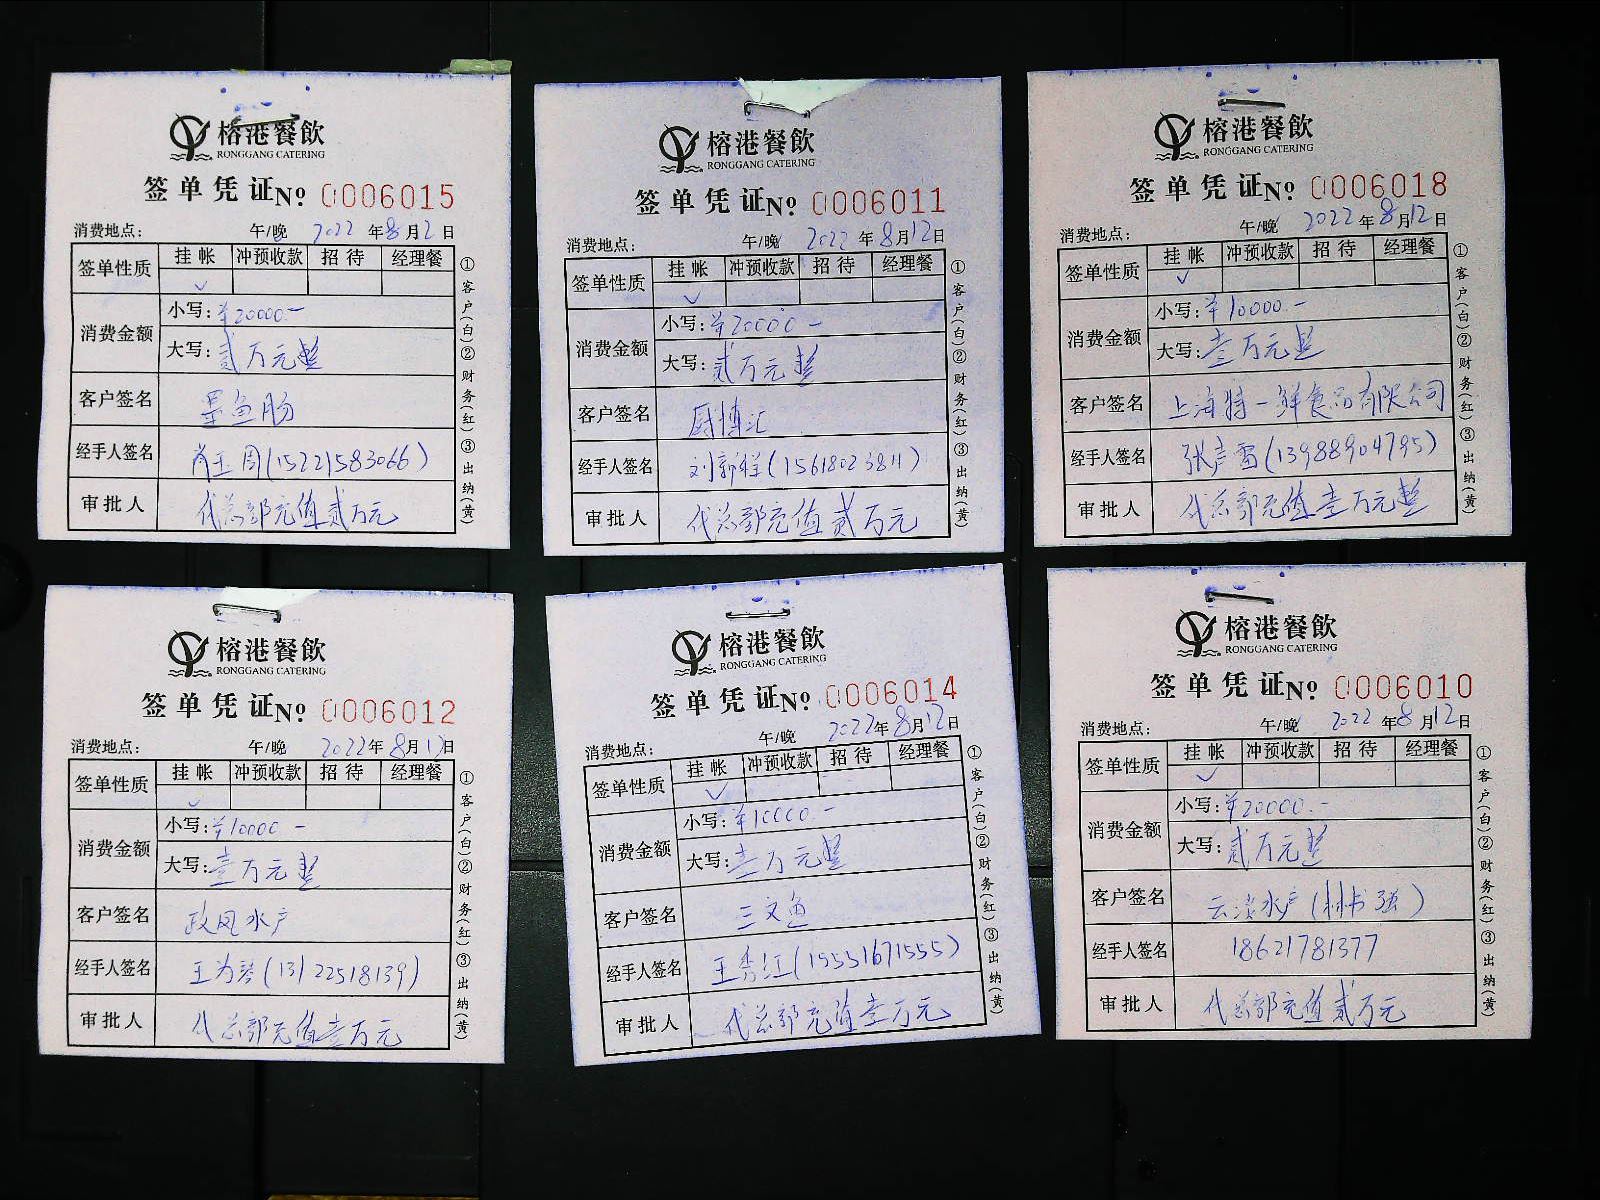 榕港餐飲
RONGGANG CATERING
签单凭证№ 0006015
消费地点： 午/晚 2022年8月12日
签单性质 挂帐 冲预收款 招待 经理餐
✓
消费金额 小写：¥20000.-
大写：贰万元整
客户签名 墨鱼肠
经手人签名 肖玉周(15221583066)
审批人 代总部充值贰万元
①客户(白)②财务(红)③出纳(黄)
榕港餐飲
RONGGANG CATERING
签单凭证№ 0006011
消费地点： 午/晚 2022年8月12日
签单性质 挂帐 冲预收款 招待 经理餐
✓
消费金额 小写：¥20000-
大写：贰万元整
客户签名 厨博汇
经手人签名 刘新程(15618023811)
审批人 代总部充值贰万元
①客户(白)②财务(红)③出纳(黄)
榕港餐飲
RONGGANG CATERING
签单凭证№ 0006018
消费地点： 午/晚 2022年8月12日
签单性质 挂帐 冲预收款 招待 经理餐
✓
消费金额 小写：¥10000-
大写：壹万元整
客户签名 上海特一鲜食品有限公司
经手人签名 张声雷(13988904795)
审批人 代总部充值壹万元整
①客户(白)②财务(红)③出纳(黄)
榕港餐飲
RONGGANG CATERING
签单凭证№ 0006012
消费地点： 午/晚 2022年8月12日
签单性质 挂帐 冲预收款 招待 经理餐
✓
消费金额 小写：¥10000-
大写：壹万元整
客户签名 政凤水产
经手人签名 王为琴(13122518139)
审批人 代总部充值壹万元
①客户(白)②财务(红)③出纳(黄)
榕港餐飲
RONGGANG CATERING
签单凭证№ 0006014
消费地点： 午/晚 2022年8月12日
签单性质 挂帐 冲预收款 招待 经理餐
✓
消费金额 小写：¥10000.-
大写：壹万元整
客户签名 三文鱼
经手人签名 王秀红(15551671555)
审批人 代总部充值壹万元
①客户(白)②财务(红)③出纳(黄)
榕港餐飲
RONGGANG CATERING
签单凭证№ 0006010
消费地点： 午/晚 2022年8月12日
签单性质 挂帐 冲预收款 招待 经理餐
✓
消费金额 小写：¥20000.-
大写：贰万元整
客户签名 云淡水产(林书强)
经手人签名 18621781377
审批人 代总部充值贰万元
①客户(白)②财务(红)③出纳(黄)